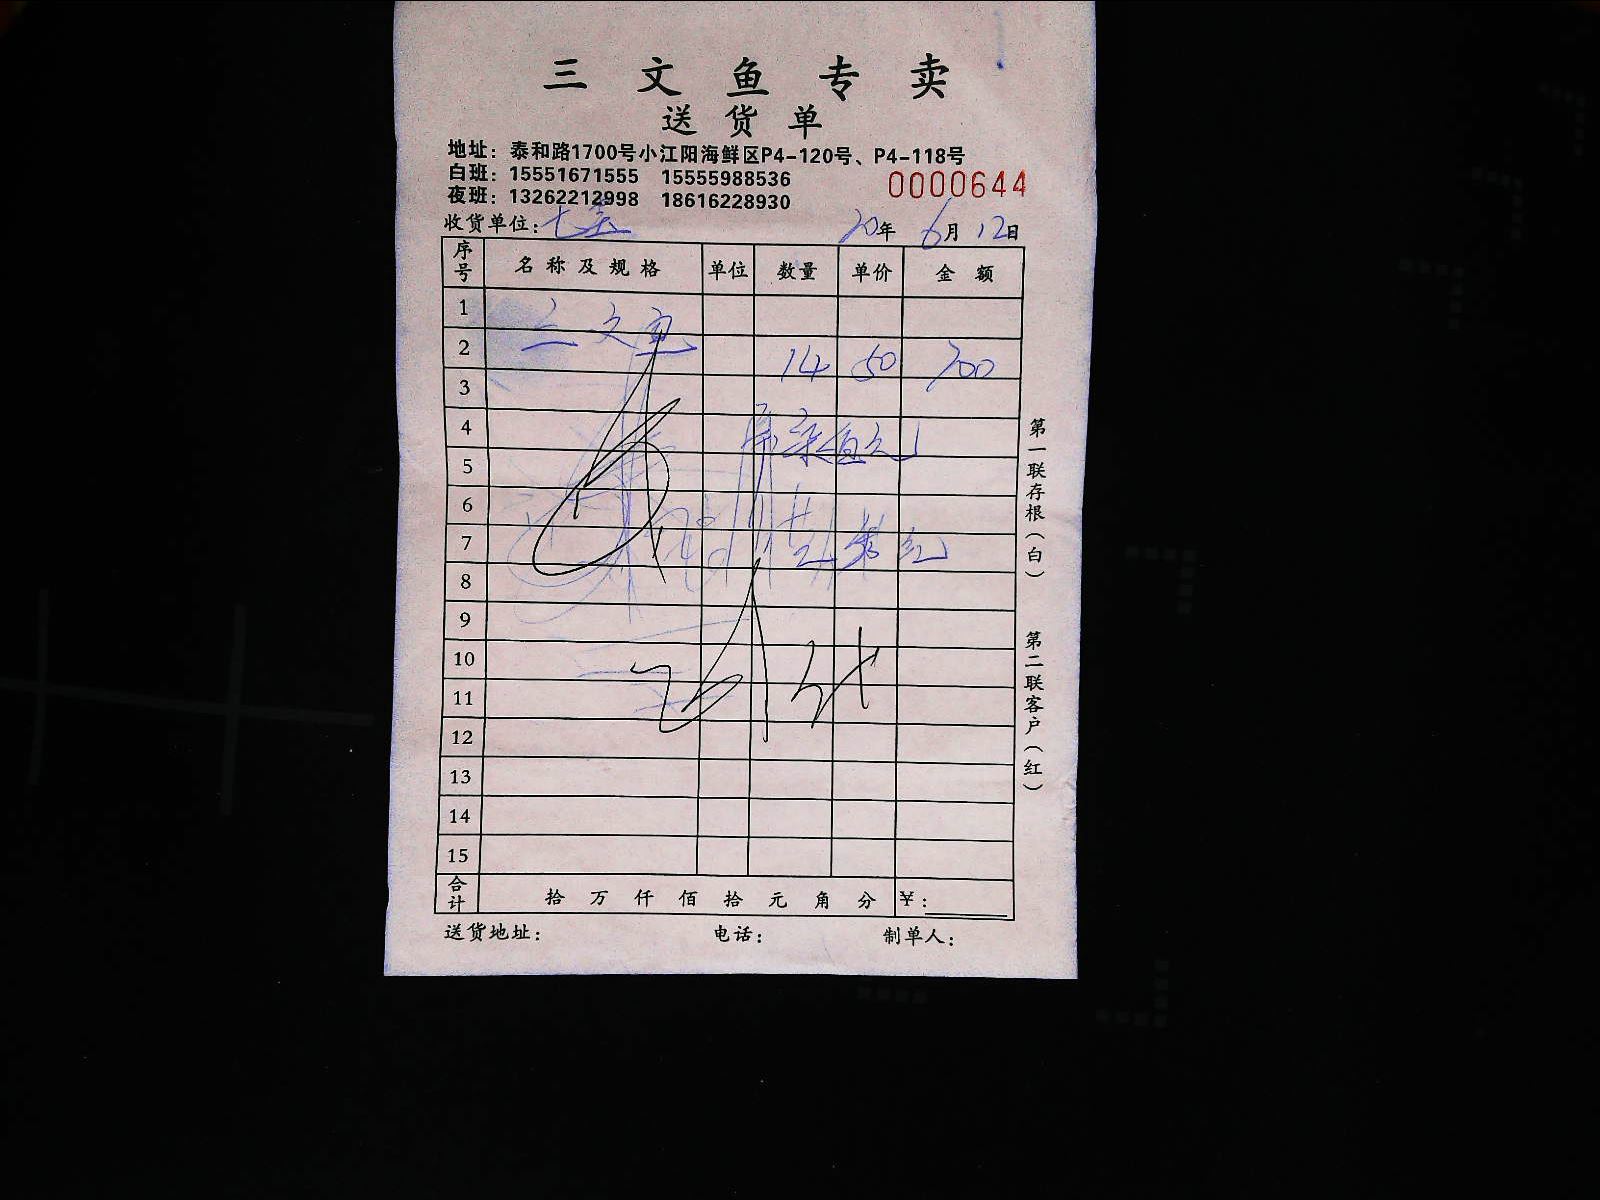 三文鱼专卖
送货单
地址：泰和路1700号小江阳海鲜区P4-120号、P4-118号
白班：15551671555 15555988536
0000644
夜班：13262212998 18616228930
收货单位： 20年 6月 12日
序号 名称及规格 单位 数量 单价 金额
1
三文鱼
2 14 50 700
3
4
5
6
7
8
9
10
11
12
13
14
15
合计 拾 万 仟 佰 拾 元 角 分 ￥：
送货地址： 电话： 制单人：
第一联存根（白）
第二联客户（红）